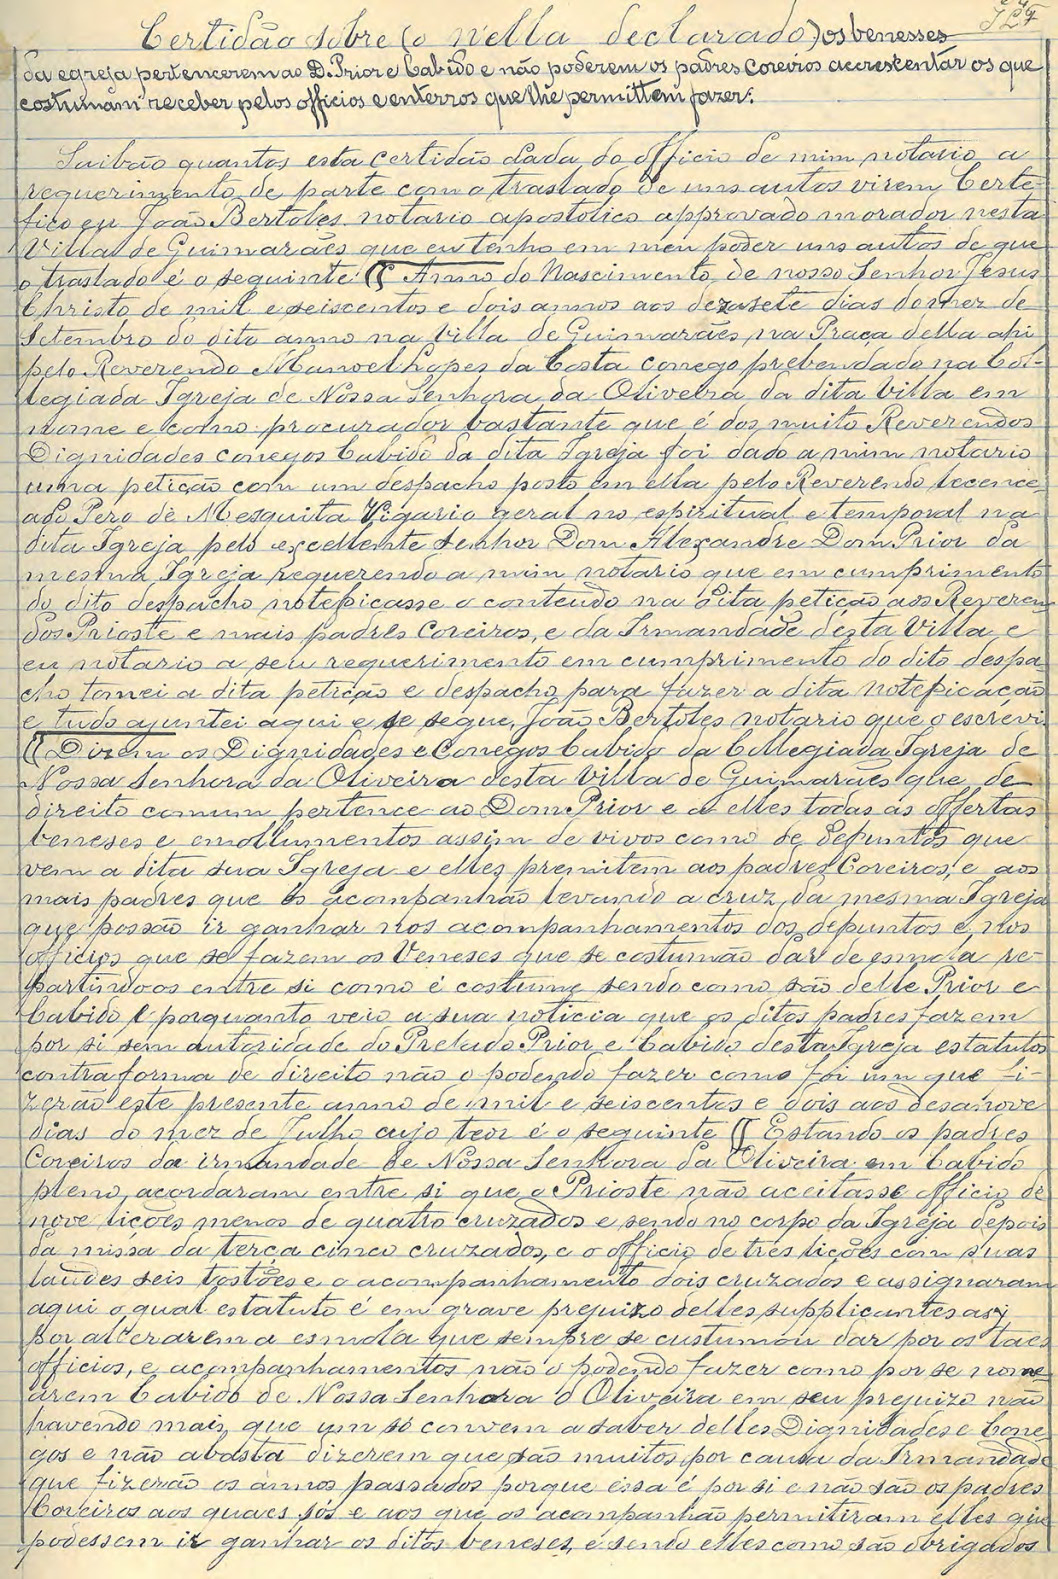 Certidão sobre (o nella declarado) os benesses
da egreja pertencerem ao D. Prior e Cabido e não poderem os padres coreiros accrescentar os que
costumam receber pelos officios e enterros que lhe permittem fazer.
Saibão quantos esta certidão dada do officio de mim notario a
requerimento de parte com o traslado de uns autos virem Certe-
fico eu João Bertoles notario apostolico approvado morador nesta
Villa de Guimarães que eu tenho em meu poder uns autos de que
o traslado é o seguinte (( Anno do Nascimento de nosso Senhor Jesus
Christo de mil e seiscentos e dois annos aos dezasete dias do mez de
Setembro do dito anno na Villa de Guimarães na Praça della ahi
pelo Reverendo Manoel Lopes da Costa conego prebendado na Col-
legiada Igreja de Nossa Senhora da Oliveira da dita Villa em
nome e como procurador bastante que é dos muito Reverendos
Dignidades conegos Cabido da dita Igreja foi dado a mim notario
uma petição com um despacho posto em ella pelo Reverendo lecence-
ado Pero de Mesquita Vigario geral no espiritual e temporal na
dita Igreja pelo excellente senhor Dom Alexandre Dom Prior da
mesma Igreja requerendo a mim notario que em cumprimento
do dito despacho noteficasse o conteudo na dita petição aos Reveren
dos Prioste e mais padres Coreiros, e da Irmandade desta Villa, e
eu notario a seu requerimento em cumprimento do dito despa-
cho tomei a dita petição e despacho para fazer a dita noteficação
e tudo ajuntei aqui e se segue, João Bertoles notario que o escrevi
(( Dizem os Dignidades e Conegos Cabido da Collegiada Igreja de
Nossa Senhora da Oliveira desta Villa de Guimarães que de
direito comum pertence ao Dom Prior e a elles todas as offertas
beneses e emollumentos assim de vivos como de defuntos que
vem a dita sua Igreja e elles premitem aos padres Coreiros, e aos
mais padres que os acompanhão levando a cruz da mesma Igreja
que possão ir ganhar nos acompanhamentos dos depuntos e nos
officios que se fazem os Veneses que se costumão dar de esmola re-
partindoos entre si como é costume sendo como são delle Prior e
Cabido e porquanto veio a sua noticia que os ditos padres fazem
por si sem autoridade do Prelado Prior e Cabido desta Igreja estatutos
contra forma de direito não o podendo fazer como foi um que fi-
zerão este presente anno de mil e seiscentos e dois aos desanove
dias do mez de Julho cujo teor é o seguinte (( Estando os padres
Coreiros da irmandade de Nossa Senhora da Oliveira em Cabido
pleno, acordaram entre si que o Prioste não aceitasse officio de
nove lições menos de quatro cruzados e sendo no corpo da Igreja depois
da missa da terça cinco cruzados, e o officio de tres lições com suas
laudes seis tostões e o acompanhamento dois cruzados e assignaram
aqui o qual estatuto é em grave prejuizo delles supplicantes assy
por alterarem a esmola que sempre se custumou dar por os taes
officios, e acompanhamentos não o podendo fazer como por se nome
arem Cabido de Nossa Senhora d'Oliveira em seu prejuizo não
havendo mais que um só convem a saber delles Dignidades e Cone
gos e não abasta dizerem que são muitos por causa da Irmandade
que fizerão os annos passados porque essa é por si e não são os padres
Coreiros aos quaes sós e aos que os acompanhão permitiram elles que
podessem ir ganhar os ditos beneses, e sendo elles como são obrigados